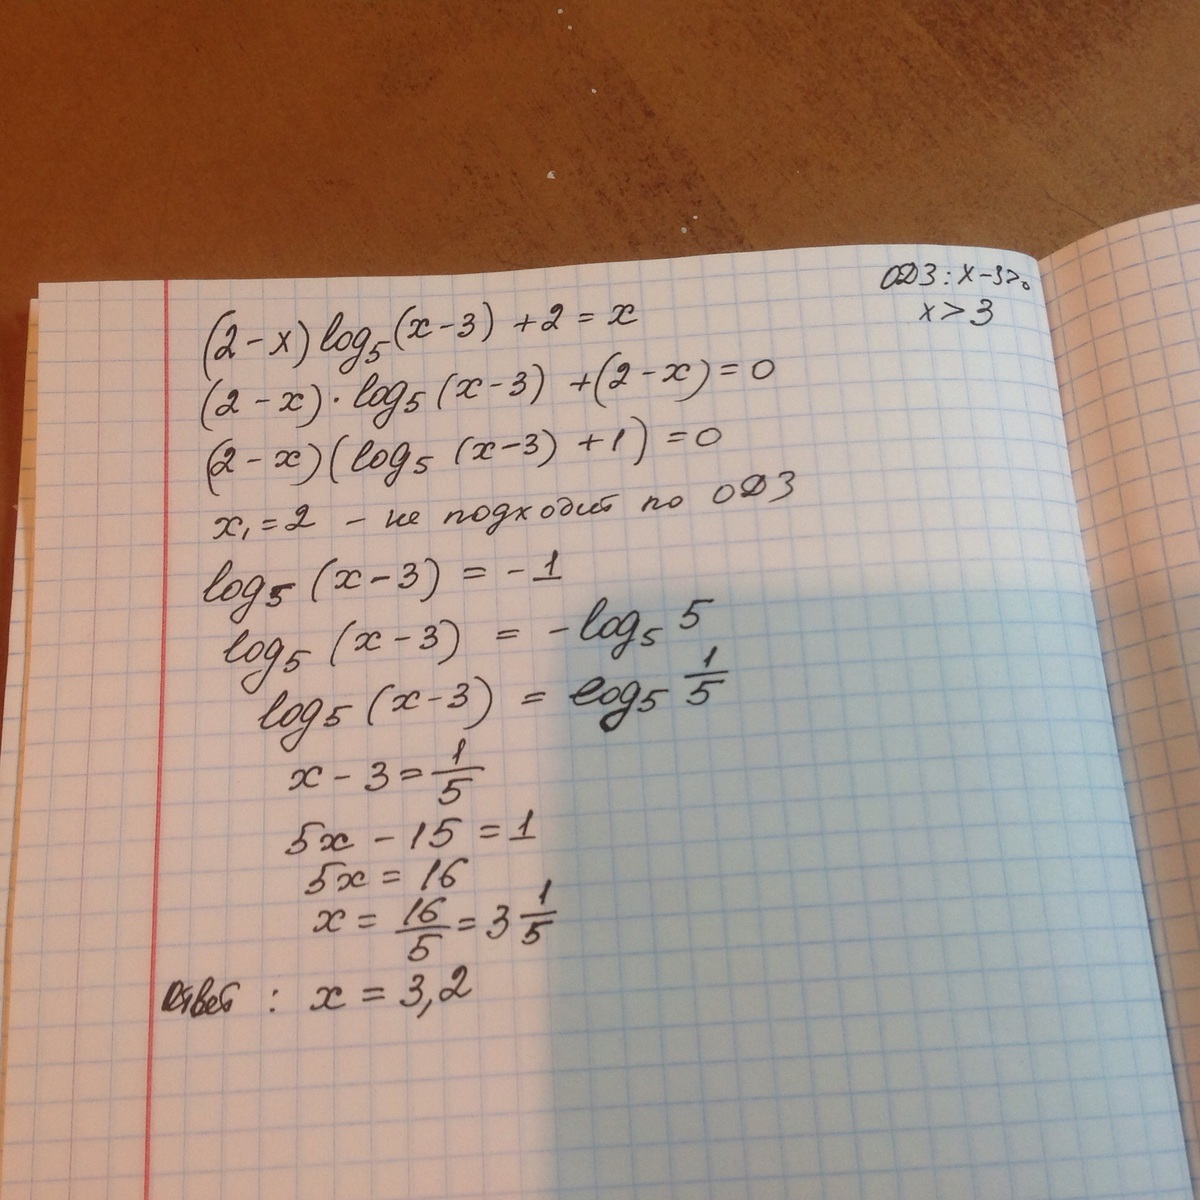 ОДЗ: x-3>0
x>3
(2-x) log₅(x-3) +2 = x
(2-x)·log₅(x-3) +(2-x)=0
(2-x)(log₅(x-3)+1)=0
x₁=2 - не подходит по ОДЗ
log₅(x-3) = -1
log₅(x-3) = -log₅ 5
log₅(x-3) = log₅ 1/5
x-3=1/5
5x-15=1
5x=16
x=16/5=3 1/5
Ответ: x=3,2